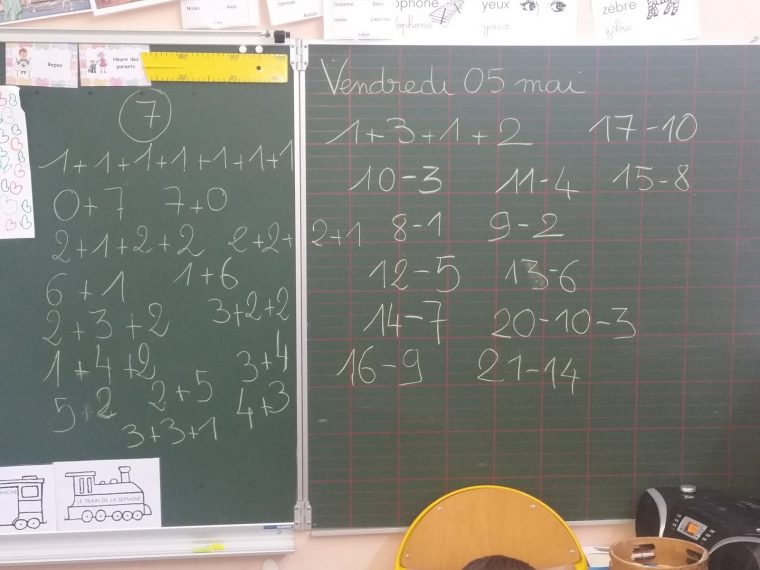 phone
yeux
zèbre
yeux
zèbre
Repas
Heure des parents
Vendredi 05 mai
7
1+1+1+1+1+1+1
0+7 7+0
2+1+2+2 2+2+2+1
6+1 1+6
3+2+2
2+3+2
1+4+2 3+4
5+2 2+5 4+3
3+3+1
1+3+1+2 17-10
10-3 11-4 15-8
8-1 9-2
12-5 13-6
14-7 20-10-3
16-9 21-14
LE TRAIN DE LA SEMAINE